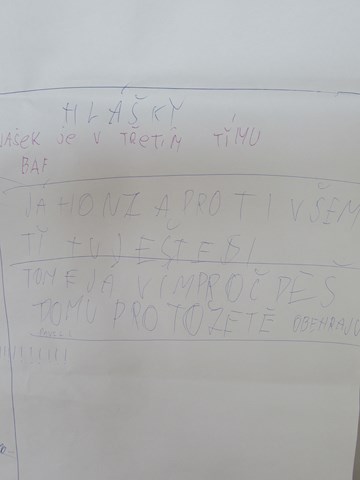 HLÁŠKY
VAŠEK je V TŘETÍM TÍMU
BAF
JÁ HONZA PROTI VŠEM
TÝ
TOME JÁ VÍM PROČ DEŠ
DOMU PROTOŽE TĚ OBEHRAJU